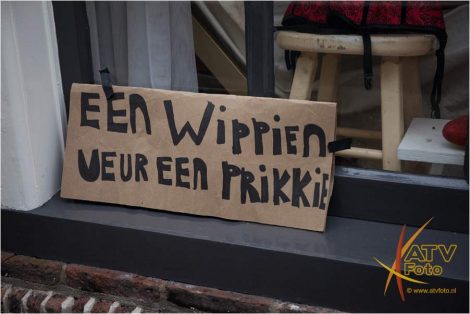 EEN WIPPIEN
VEUR EEN PRIKKIE
ATV
Foto
© www.atvfoto.nl